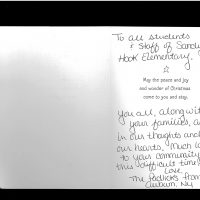 To all students
& Staff of Sandy
Hook Elementary.
May the peace and joy
and wonder of Christmas
come to you and stay.
You all, along with
your families, a
in our thoughts and
our hearts. Much lo
to your community
this difficult time
Love,
The
from
Auburn, NY